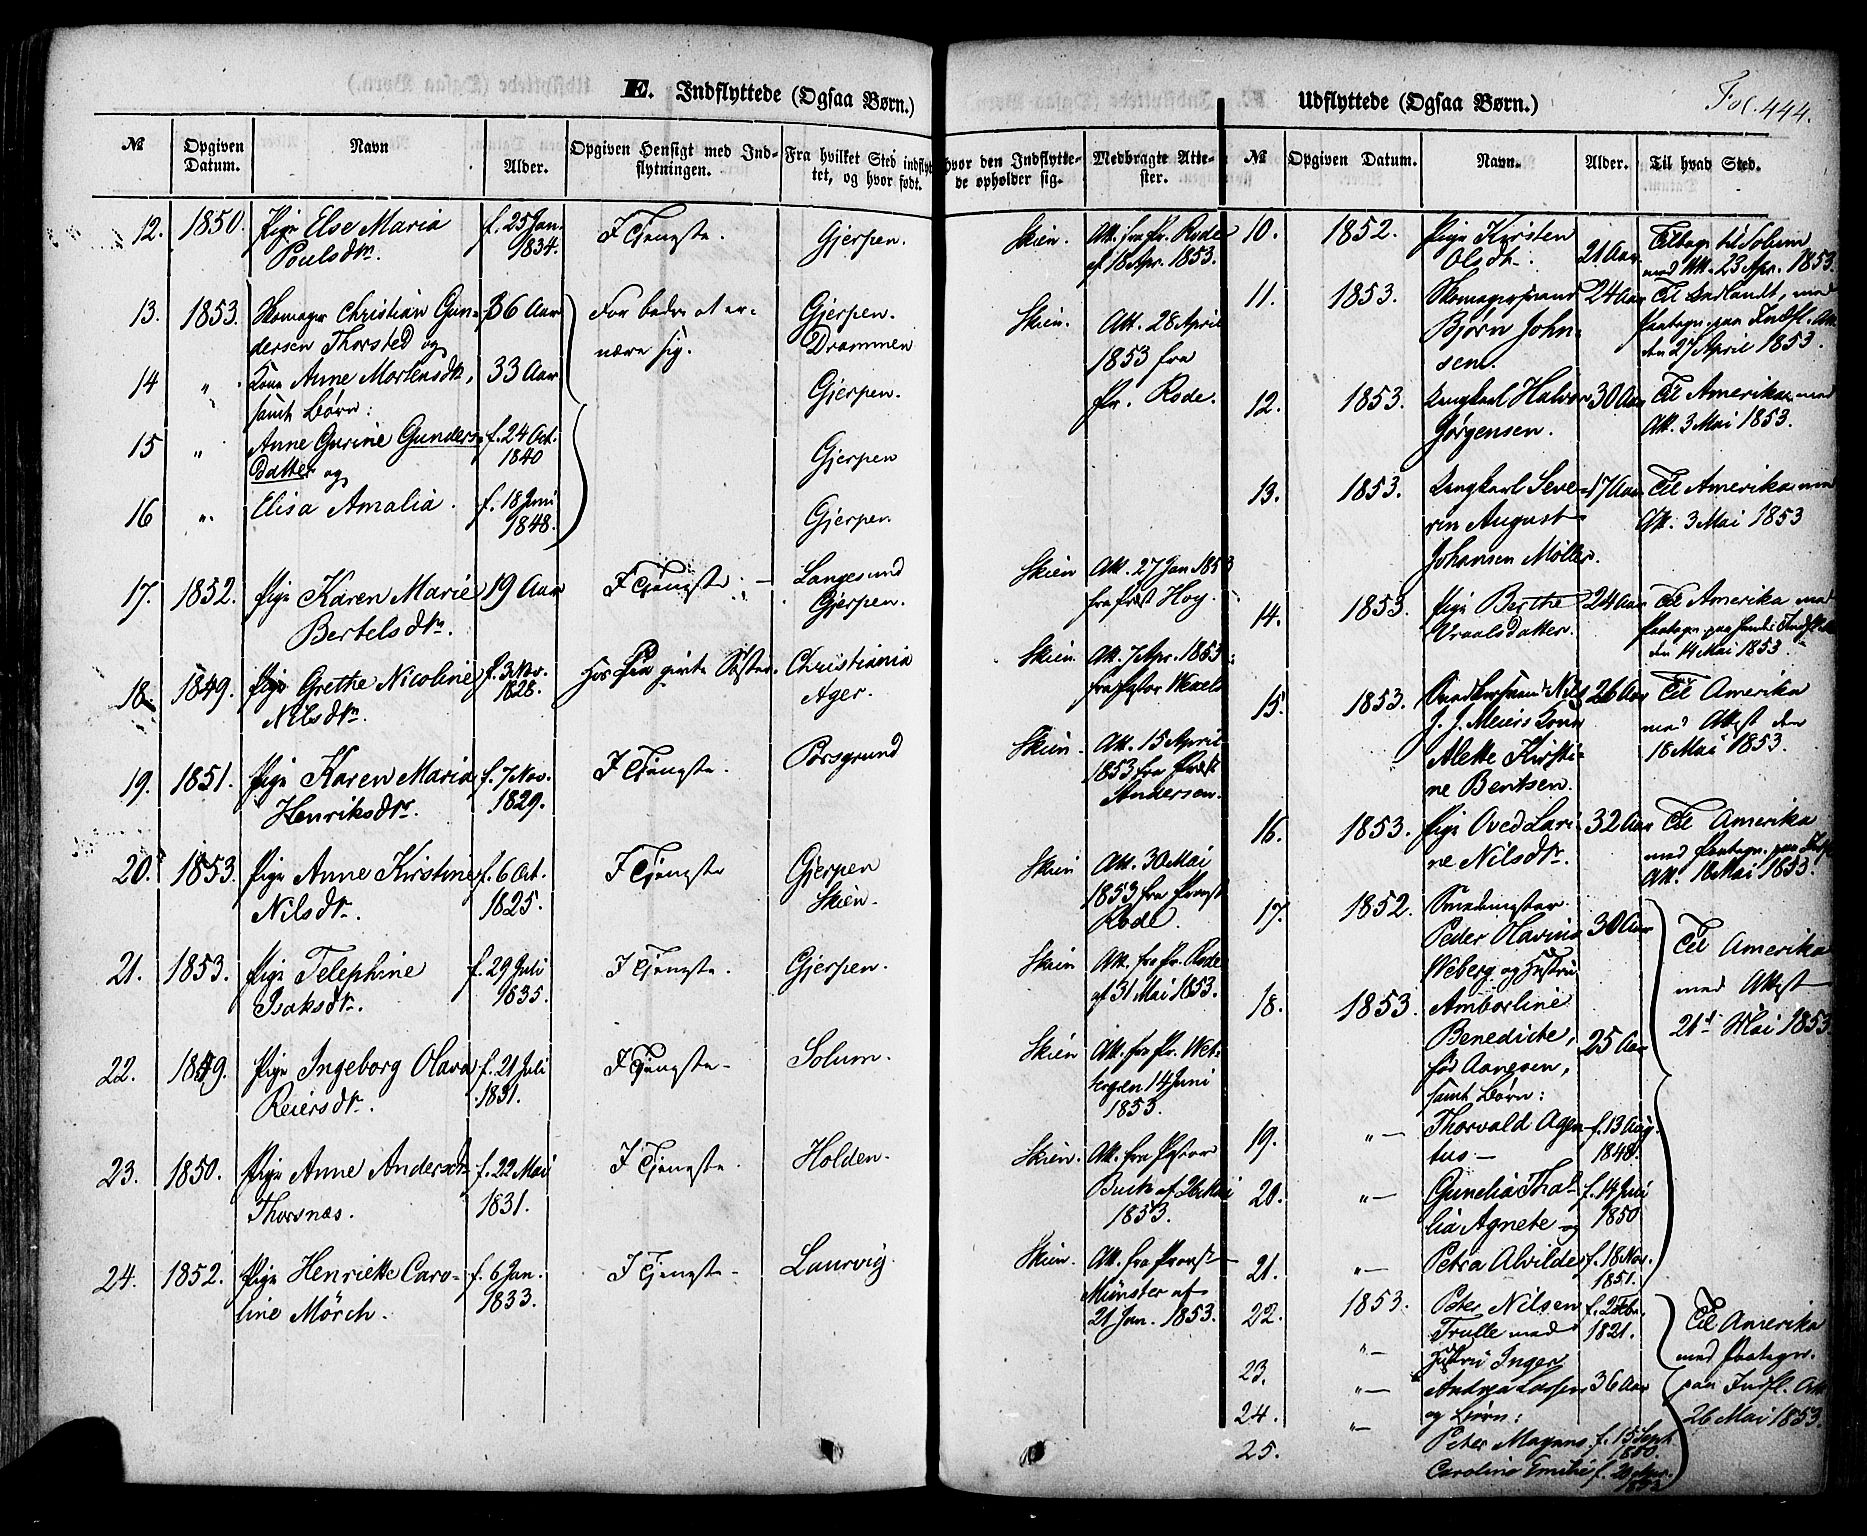 E. Indflyttede (Ogsaa Børn.)
Udflyttede (Ogsaa Børn.)
Fol. 444.
№
Opgiven Datum.
Navn
Alder.
Opgiven Hensigt med Ind-
flytningen.
Fra hvilket Sted indflyt-
tet, og hvor født.
Hvor den Indflytte-
de opholder sig.
Medbragte Atte-
ster.
№
Opgiven Datum.
Navn.
Alder.
Til hvad Sted.
12. 1850. Pige Else Maria f. 25 Jan. I Tjeneste. Gjerpen. Skien. Att. fra Pr. Rode
Poulsdtr. 1834. af 18 Apr. 1853.
13. 1853. Skomager Christian Gun- 36 Aar For bedre at er- Gjerpen. Skien. Att. 28 April
dersen Thorsted og nære sig. Drammen 1853 fra
14 " Kone Anne Mortensdtr, 33 Aar Gjerpen. Pr. Rode.
samt Børn:
15 " Anne Gurine Gunders- f. 24 Oct. Gjerpen
Datter og 1840
16 " Elisa Amalia. f. 18 Juni Gjerpen
1848.
17. 1852. Pige Karen Marie 19 Aar I Tjeneste. Langesund Skien Att. 27 Jan 1853
Bertelsdtr. Gjerpen. fra Præst Hoy.
18 1849. Pige Grethe Nicoline f. 3 Nov. Hos sin givte Søster. Christiania Skien. Att. 7 Apr. 1853
Nilsdtr. 1828. Ager. fra Pastor Wexels
19. 1851. Pige Karen Maria f. 7 Nov. I Tjeneste. Porsgrund Skien. Att. 15 April
Henriksdtr. 1829. 1853 fra Præst
Andersen.
20. 1853. Pige Anne Kirstine f. 6 Oct. I Tjeneste Gjerpen Skien Att. 30 Mai
Nilsdtr. 1825. Skien. 1853 fra Provst
Rode.
21. 1853. Pige Telephine f. 29 Juli I Tjeneste. Gjerpen. Skien Att. fra Pr. Rode
Isaksdtr. 1835. af 31 Mai 1853.
22. 1849. Pige Ingeborg Olava f. 21 Juli I Tjeneste Solum. Skien Att. fra Pr. Wet-
Reiersdtr. 1831. ergren 14 Juni
1853.
23. 1850. Pige Anne Andersdtr f. 22 Mai I Tjeneste. Holden. Skien. Att. fra Pastor
Thorsnæs. 1831. af Mai
1853.
24. 1852. Pige Henriette Caro- f. 6 Jan. I Tjeneste Laurvig. Skien. Att. fra Provst
line Mörch. 1833. Münster af
21 Jan. 1853.
10. 1852. Pige Kirsten 21 Aar Tilbage til Solum
Olsdtr. med Att. 23 Apr. 1853.
11. 1853. Skomagersvend 24 Aar Til Indlandt, med
Bjørn John- Paategn. paa Indfl. Att.
sen. den 27 April 1853.
12. 1853. Ungkarl Halvor 30 Aar Til Amerika, med
Jørgensen. Att. 3 Mai 1853.
13. 1853. Ungkarl Seve- 17 Aar Til Amerika med
rin August Att. 3 Mai 1853
Johansen Møller.
14. 1853. Pige Berthe 24 Aar Til Amerika med
Vraalsdatter. Paategn. paa Indfl.
den 14 Mai 1853.
15. 1853. Nils 26 Aar Til Amerika
J. J. Meiers Kone med Attest den
Alette Kirsti- 18 Mai 1853.
ne Bentsen.
16. 1853. Pige Oved Lari- 32 Aar Til Amerika
ne Nilsdtr. med Paategn. paa Indfl.
Att. 18 Mai 1853.
17. 1852. Smedemester
Peder Olavius 30 Aar Til Amerika
Weberg og Hustru med Attest
18. 1853. Amborline 21d Mai 1853.
Benedicte, 25 Aar
fød Aanesen,
samt Børn:
19. "— Thorvald Agen- f. 13 Aug.
tus — 1848.
20. "— Gunelia Thal- f. 14 Juli
lia Agnete og 1850
21. "— Petra Alvilde f. 18 Nov.
1851.
22. 1853. Peter Nilsen f. 2 Feb. Til Amerika
Trulle med 1821. med Paategn.
23. "— Hustru Inger paa Indfl. Att.
"— Andrea Larsen 36 Aar 26 Mai 1853.
24. "— og Børn:
25. Peter Magnus f. 15 Sept
1850.
Caroline Emilie f. 20 Mar.